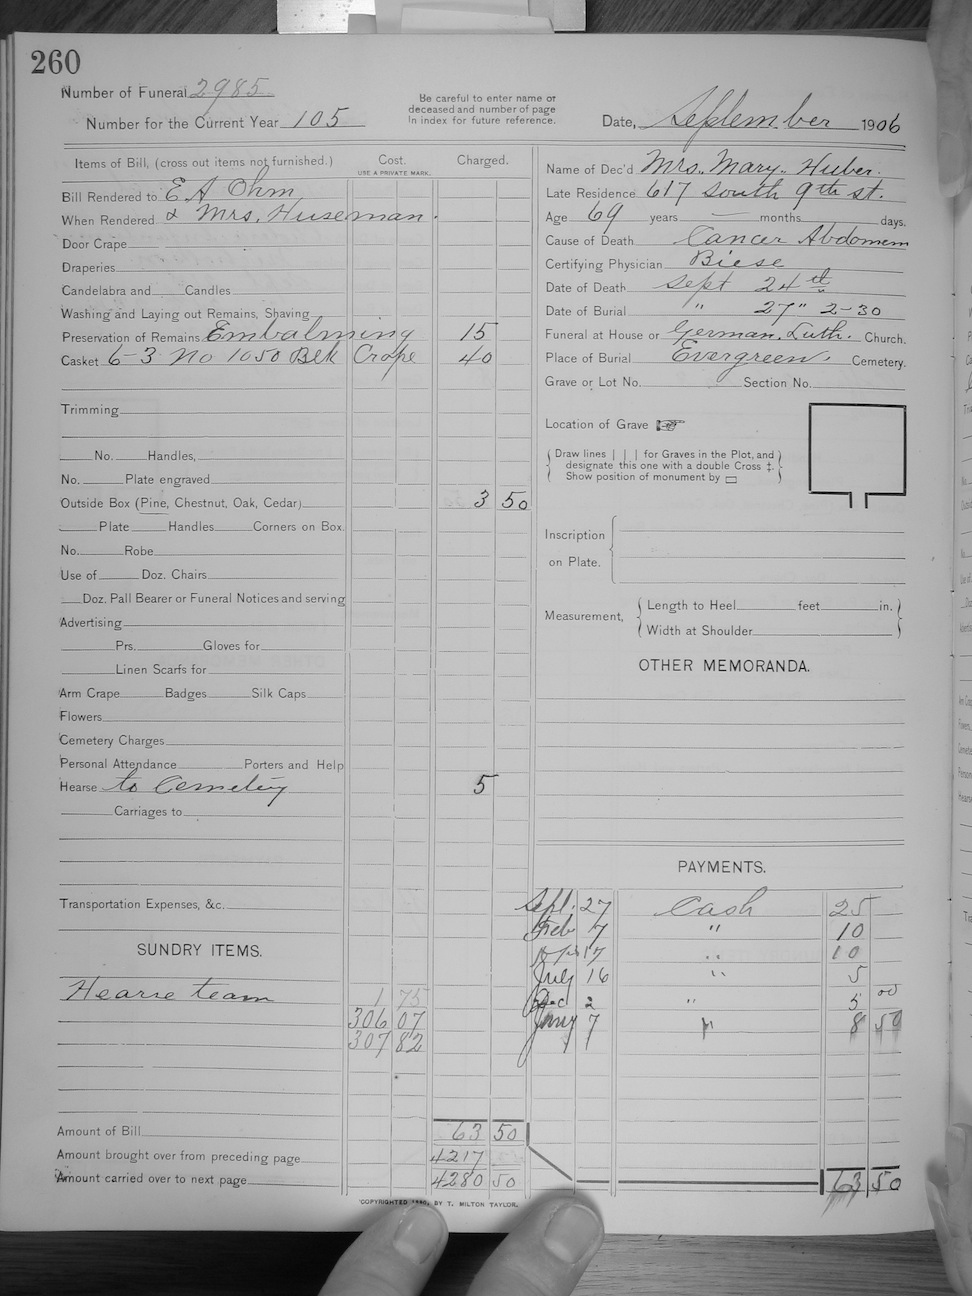 260
Number of Funeral 2985
Number for the Current Year 105
Be careful to enter name of
deceased and number of page
in index for future reference.
Date, September 1906
Items of Bill, (cross out items not furnished.) Cost. Charged.
USE A PRIVATE MARK.
Bill Rendered to E A Ohm
When Rendered & Mrs. Huseman.
Door Crape
Draperies
Candelabra and Candles
Washing and Laying out Remains, Shaving
Preservation of Remains Embalming 15
Casket 6-3 No 1050 Blk Crape 40
Trimming
No. Handles,
No. Plate engraved
Outside Box (Pine, Chestnut, Oak, Cedar) 3 50
Plate Handles Corners on Box.
No. Robe
Use of Doz. Chairs
Doz. Pall Bearer or Funeral Notices and serving
Advertising
Prs. Gloves for
Linen Scarfs for
Arm Crape Badges Silk Caps
Flowers
Cemetery Charges
Personal Attendance Porters and Help
Hearse to Cemetery 5
Carriages to
Transportation Expenses, &c.
SUNDRY ITEMS.
Hearse team 1 75
306 07
307 82
Amount of Bill 63 50
Amount brought over from preceding page 4217
Amount carried over to next page 4280 50
COPYRIGHTED BY T. MILTON TAYLOR.
Name of Dec'd Mrs. Mary Huber.
Late Residence 617 South 9th st.
Age 69 years — months days.
Cause of Death Cancer Abdomen
Certifying Physician Biese
Date of Death Sept 24th
Date of Burial " 27" 2-30
Funeral at House or German. Luth. Church.
Place of Burial Evergreen. Cemetery.
Grave or Lot No. Section No.
Location of Grave ☞
Draw lines | | | for Graves in the Plot, and
designate this one with a double Cross ‡.
Show position of monument by ▭
Inscription
on Plate.
Measurement, Length to Heel feet in.
Width at Shoulder
OTHER MEMORANDA.
PAYMENTS.
Sept. 27 Cash 25
Feb 7 " 10
17 " 10
July 16 " 5
Dec 2 " 5 00
Jany 7 " 8 50
63 50